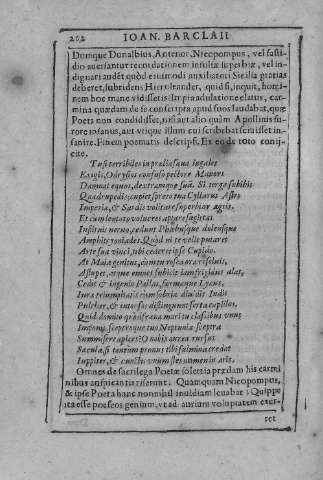 202 IOAN. BARCLAII
Dumque Dunalbius, Antenor, Nicopompus, vel fasti-
dio auersantur recordationem insulsæ superbiæ, vel in-
dignari audẽt quòd eiusmodi auxiliatori Sicilia gratias
deberet, subridens Hieroleander, quid si, inquit, homi-
nem hoc mane vidissetis? In piã adulatione elatus, car-
mina quædam de se conscripta apud suos laudabat, quæ
Poeta non condidisset, nisi aut alio quàm Apollinis fu-
rore insanus, aut vtique illum cui scribebat scriisset in-
sanire. Finem poematis descripsi. Ex eo de toto conij-
cite.
Tu si terribiles in prælia sæua iugales
Exigis, Odrysius confuso pectore Mauors
Damnat equos, dextramque suã. Si terga subibis
Quadrupedis; cupiet
Imperia, & Sardis volitare superbior agris.
Et cum lentas volucres aptare sagittas
Institit neruo, cedunt Phœbusque dolensque
Amphitryoniades. Quòd ni te velle putaret
Arte sua vinci, tibi cederet ipse Cupido.
At Maia genitus,
Astupet, atque omnes subiicit
Cedit & ingenio Pallas, formæque Lyæus,
Iura triumphatis cum fabria diuidis Indis
Pulcher, & intonsos distinguunt serta capillos.
Quid domito quòd fræna mari tu classibus vnus
Imponis, sceptroque tuo Neptunia sceptra
Summisere apices? O nobis aurea rursus
Sæcula, si tantùm pronus tibi fulmina credat
Iuppiter, & cunctis vnum sis numen in aris.
Omnes de sacrilega Poetæ solertia prædam his carmi
nibus auspicantis riserunt. Quamquam Nicopompus,
& ipse Poeta hanc nonnihil inuidiam leuabat: Quippe
ita esse poeseos genium, vt ad aurium voluptatem exer-